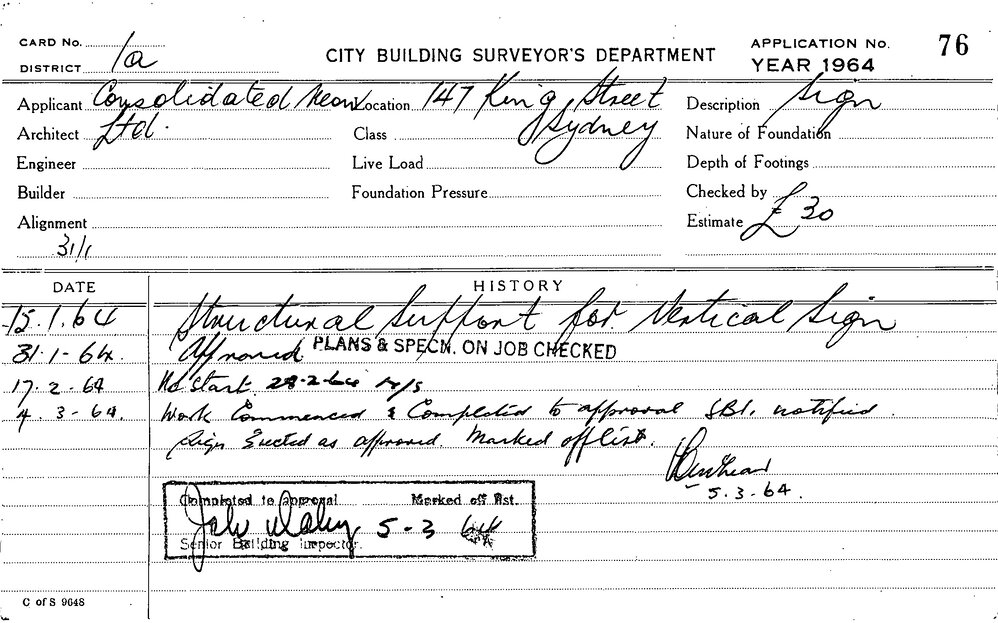 CARD No.
DISTRICT 1a
CITY BUILDING SURVEYOR'S DEPARTMENT
APPLICATION No. 76
YEAR 1964
Applicant Consolidated Neon
Location 147 King Street
Description Sign
Architect Ltd.
Class Sydney
Nature of Foundation
Engineer
Live Load
Depth of Footings
Builder
Foundation Pressure
Checked by
Alignment
Estimate £30
31/1
DATE HISTORY
15.1.64 Structural Support for Vertical Sign
31.1-64. Approved PLANS & SPECN. ON JOB CHECKED
17.2-64 No Start. 28-2-64 N/S
4.3-64. Work Commenced & Completed to approval SBI. notified.
Sign Erected as approved. Marked off list.
5.3.64.
Completed to approval Marked off list.
5-3 64
Senior Building Inspector.
C of S 9648